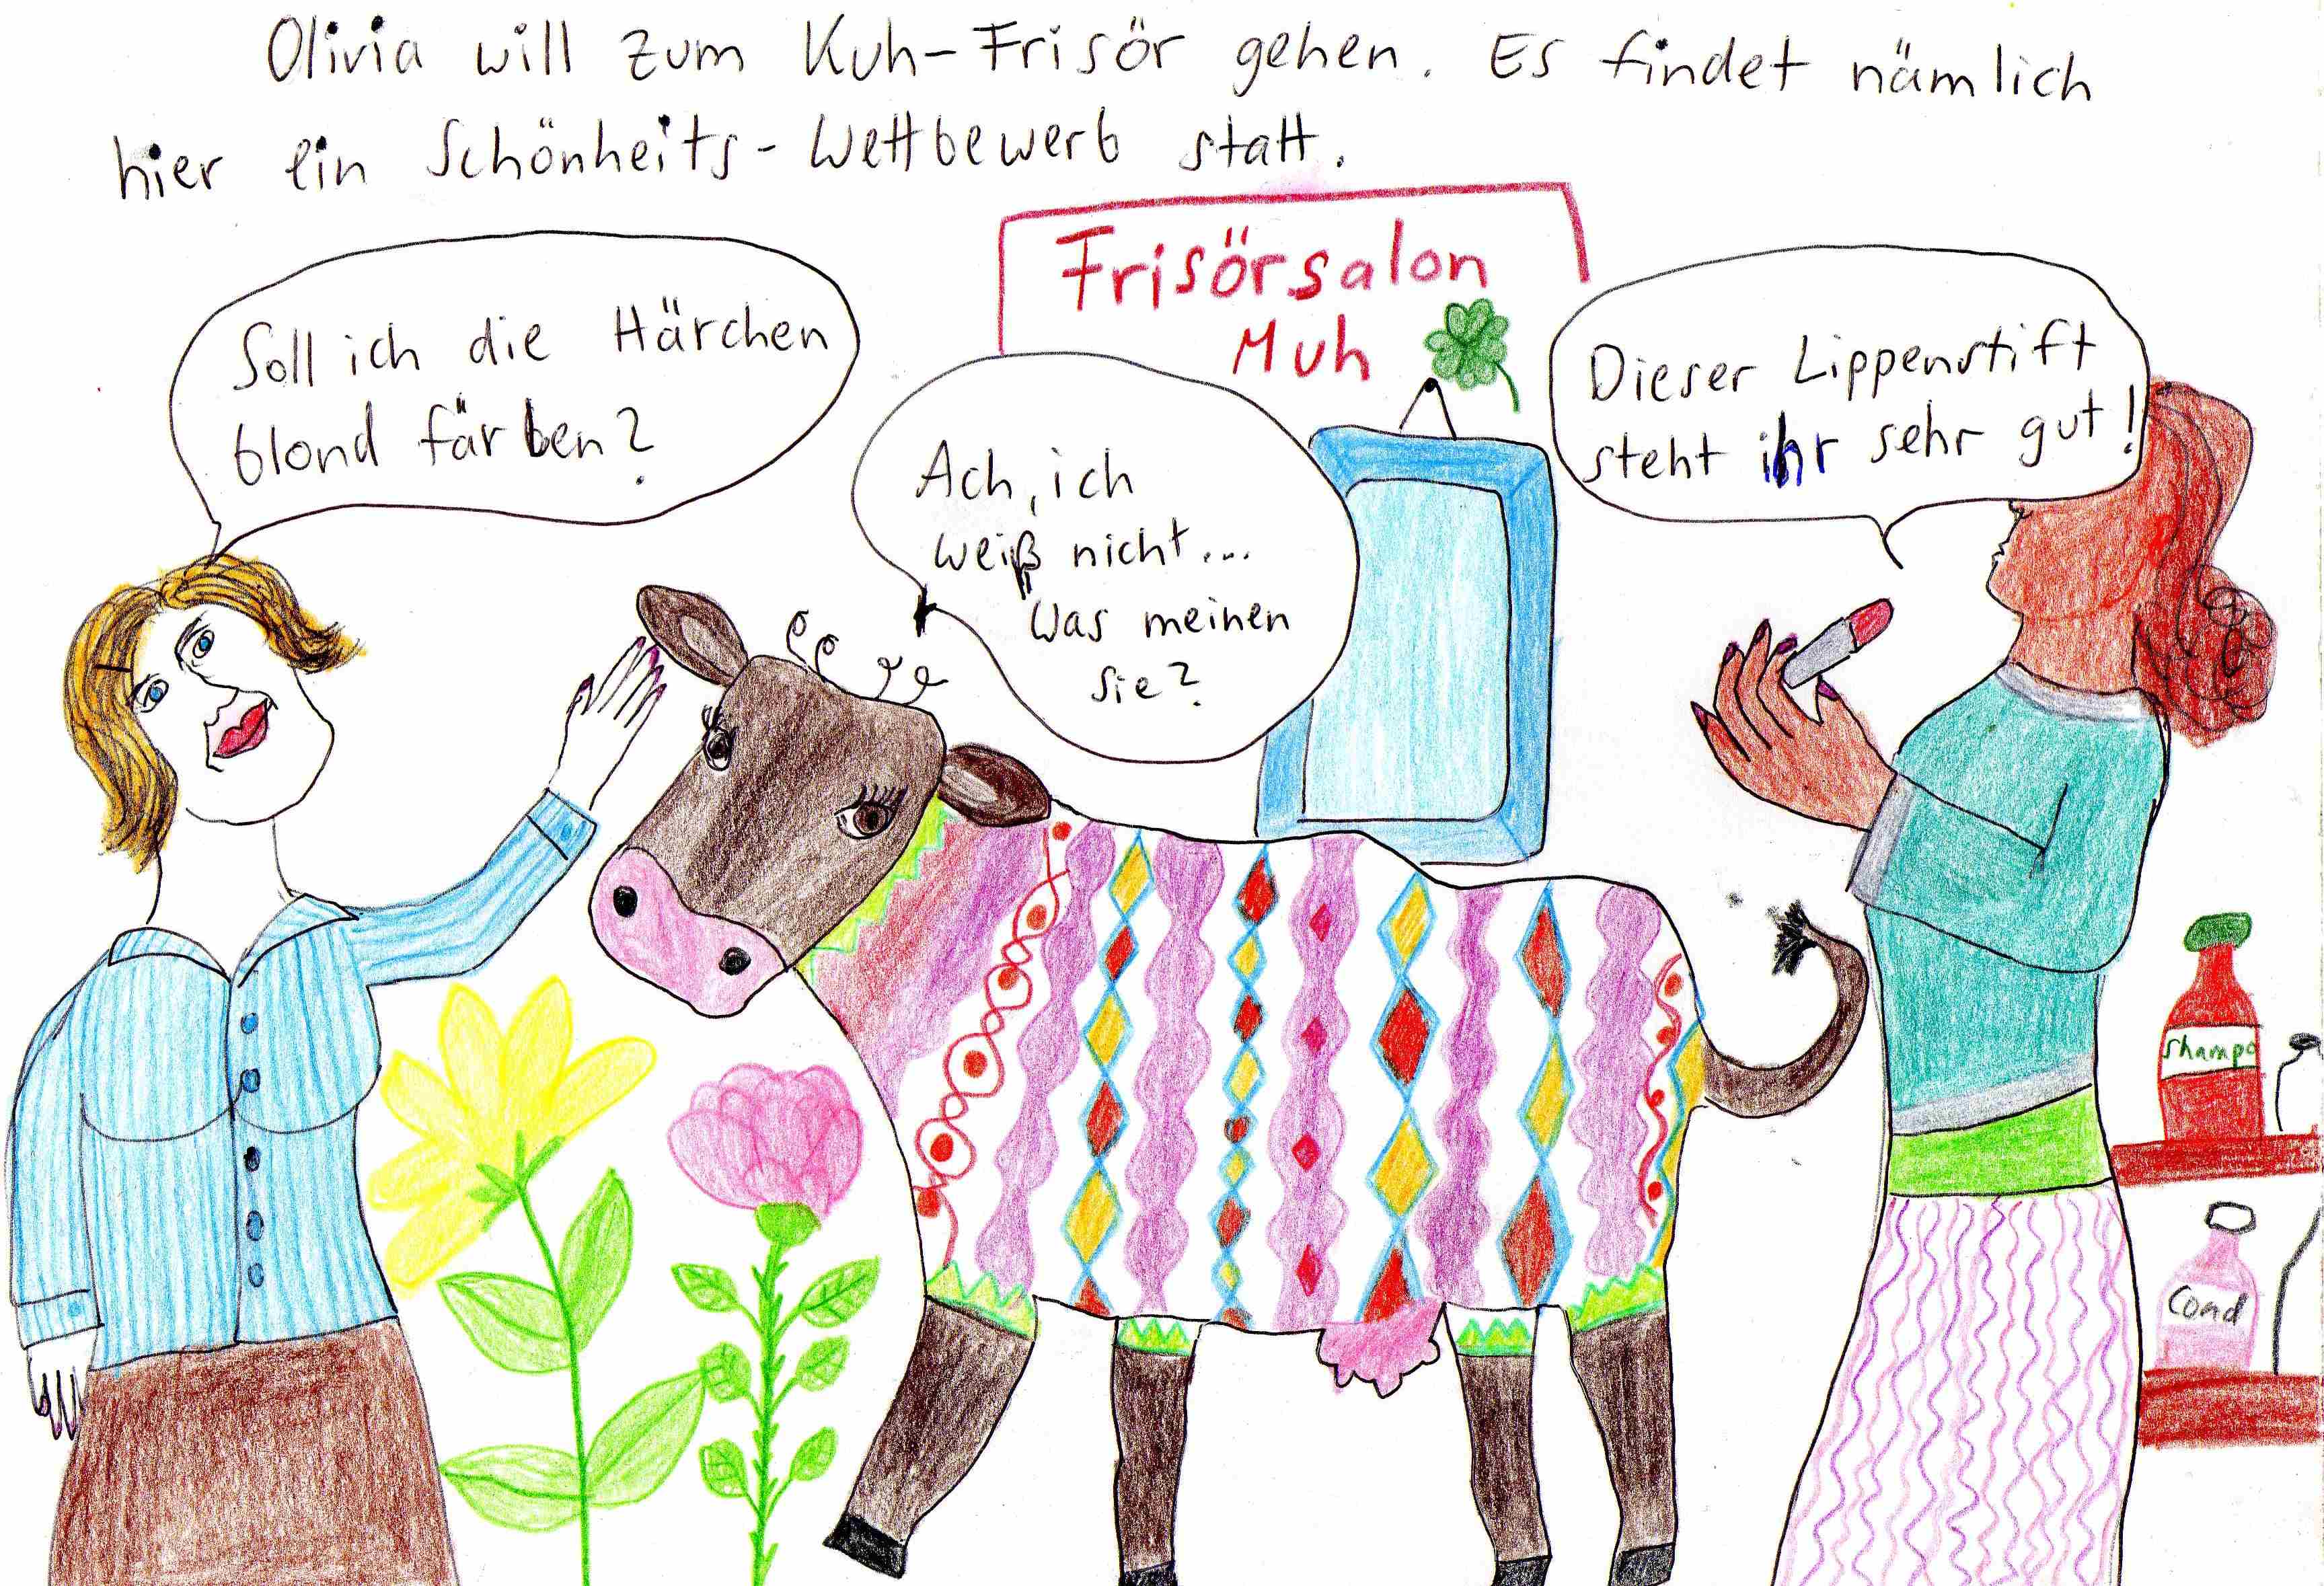 Olivia will zum Kuh-Frisör gehen. Es findet nämlich
hier ein Schönheits-Wettbewerb statt.
Frisörsalon
Muh
Soll ich die Härchen
blond färben?
Ach, ich
weiß nicht...
Was meinen
sie?
Dieser Lippenstift
steht ihr sehr gut!
Shampo
Cond